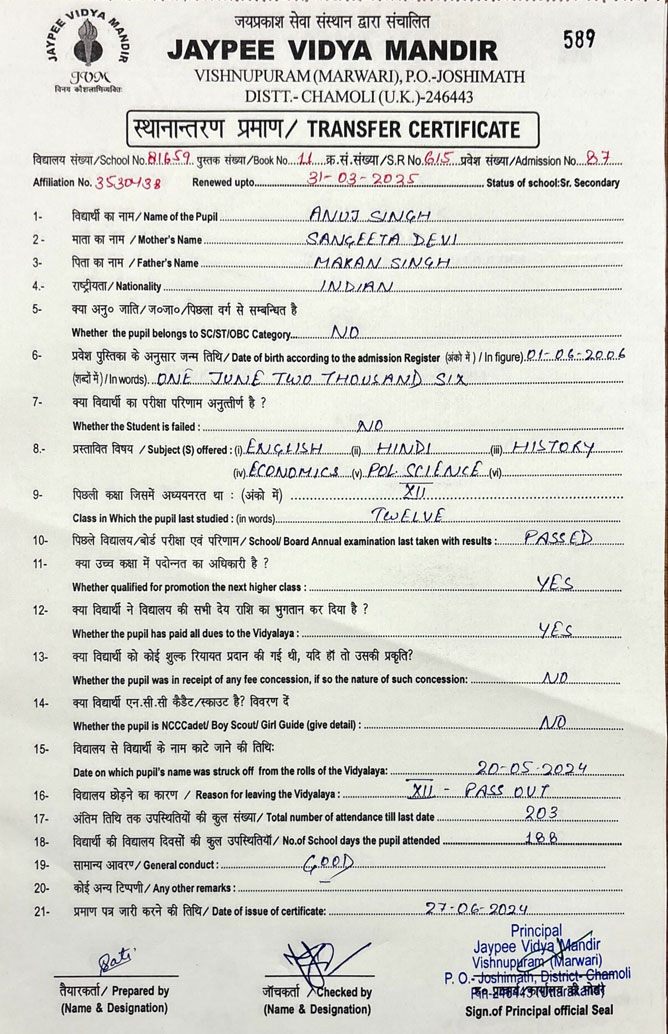 जयप्रकाश सेवा संस्थान द्वारा संचालित
JAYPEE VIDYA MANDIR
JVM
विनय कौशलाभिव्यक्तिः
JAYPEE VIDYA MANDIR
589
VISHNUPURAM (MARWARI), P.O.-JOSHIMATH
DISTT.- CHAMOLI (U.K.)-246443
स्थानान्तरण प्रमाण/ TRANSFER CERTIFICATE
विद्यालय संख्या/School No. 81659 पुस्तक संख्या/Book No. 11 क्र.सं.संख्या/S.R No. 615 प्रवेश संख्या/Admission No. 87
Affiliation No. 3530438 Renewed upto 31-03-2025 Status of school:Sr. Secondary
1- विद्यार्थी का नाम/ Name of the Pupil ANUJ SINGH
2- माता का नाम / Mother's Name SANGEETA DEVI
3- पिता का नाम / Father's Name MAKAN SINGH
4.- राष्ट्रीयता/ Nationality INDIAN
5- क्या अनु० जाति/ ज०जा०/पिछला वर्ग से सम्बन्धित है
Whether the pupil belongs to SC/ST/OBC Category... NO
6- प्रवेश पुस्तिका के अनुसार जन्म तिथि/ Date of birth according to the admission Register (अंको में) / In figure). 01-06-2006
(शब्दों में) / In words). ONE JUNE TWO THOUSAND SIX
7- क्या विद्यार्थी का परीक्षा परिणाम अनुत्तीर्ण है ?
Whether the Student is failed : NO
8.- प्रस्तावित विषय / Subject (S) offered : (i) ENGLISH (ii) HINDI (iii) HISTORY
(iv) ECONOMICS (v) POL. SCIENCE (vi)
9- पिछली कक्षा जिसमें अध्ययनरत था : (अंको में) XII
Class in Which the pupil last studied : (in words) TWELVE
10- पिछले विद्यालय/बोर्ड परीक्षा एवं परिणाम/ School/ Board Annual examination last taken with results : PASSED
11- क्या उच्च कक्षा में पदोन्नत का अधिकारी है ?
Whether qualified for promotion the next higher class : YES
12- क्या विद्यार्थी ने विद्यालय की सभी देय राशि का भुगतान कर दिया है ?
Whether the pupil has paid all dues to the Vidyalaya : YES
13- क्या विद्यार्थी को कोई शुल्क रियायत प्रदान की गई थी, यदि हाँ तो उसकी प्रकृति?
Whether the pupil was in receipt of any fee concession, if so the nature of such concession: NO
14- क्या विद्यार्थी एन.सी.सी कैडैट/स्काउट है? विवरण दें
Whether the pupil is NCCCadet/ Boy Scout/ Girl Guide (give detail) : NO
15- विद्यालय से विद्यार्थी के नाम काटे जाने की तिथि:
Date on which pupil's name was struck off from the rolls of the Vidyalaya: 20-05-2024
16- विद्यालय छोड़ने का कारण / Reason for leaving the Vidyalaya : XII - PASS OUT
17- अंतिम तिथि तक उपस्थितियों की कुल संख्या/ Total number of attendance till last date 203
18- विद्यार्थी की विद्यालय दिवसों की कुल उपस्थितियाँ/ No.of School days the pupil attended 188
19- सामान्य आवरण/ General conduct : GOOD
20- कोई अन्य टिप्पणी/ Any other remarks :
21- प्रमाण पत्र जारी करने की तिथि/ Date of issue of certificate: 27-06-2024
Principal
Jaypee Vidya Mandir
Vishnupuram (Marwari)
P. O.- Joshimath, District- Chamoli
Pin-246443 (Uttarakhand)
तैयारकर्ता / Prepared by
(Name & Designation)
जाँचकर्ता / Checked by
(Name & Designation)
Sign.of Principal official Seal